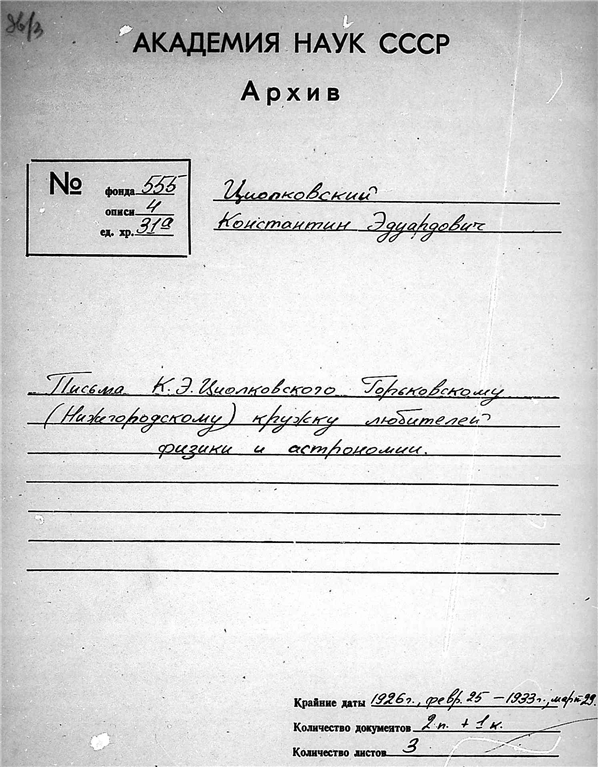 36/3
АКАДЕМИЯ НАУК СССР
Архив
№
фонда 555
описи 4
ед. хр. 31а
Циолковский
Константин Эдуардович
Письма К.Э.Циолковского Горьковскому
(Нижегородскому) кружку любителей
физики и астрономии.
Крайние даты 1926г., февр. 25 – 1933г., март 29.
Количество документов 2 п. + 1 к.
Количество листов 3